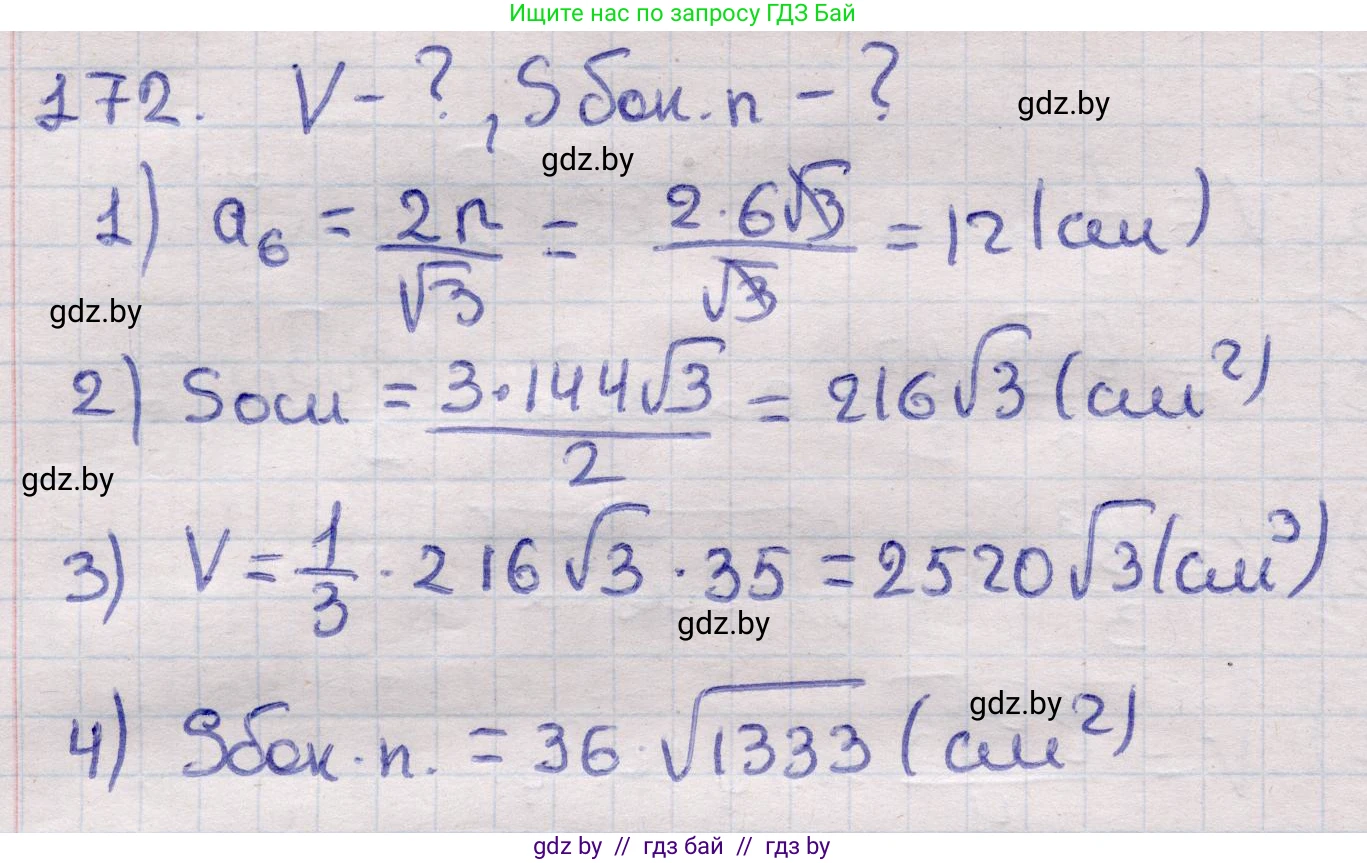 Ищите нас по запросу ГДЗ Бай
172. V - ?, Sбок. п - ?
gdz.by
gdz.by
1) a₆ = 2r/√3 = 2·6√3/√3 = 12 (см)
gdz.by
2) Sосн = 3·144√3/2 = 216√3 (см²)
gdz.by
3) V = 1/3 · 216√3 · 35 = 2520√3 (см³)
gdz.by
gdz.by
4) Sбок. п. = 36 √1333 (см²)
gdz.by // гдз бай // гдз by